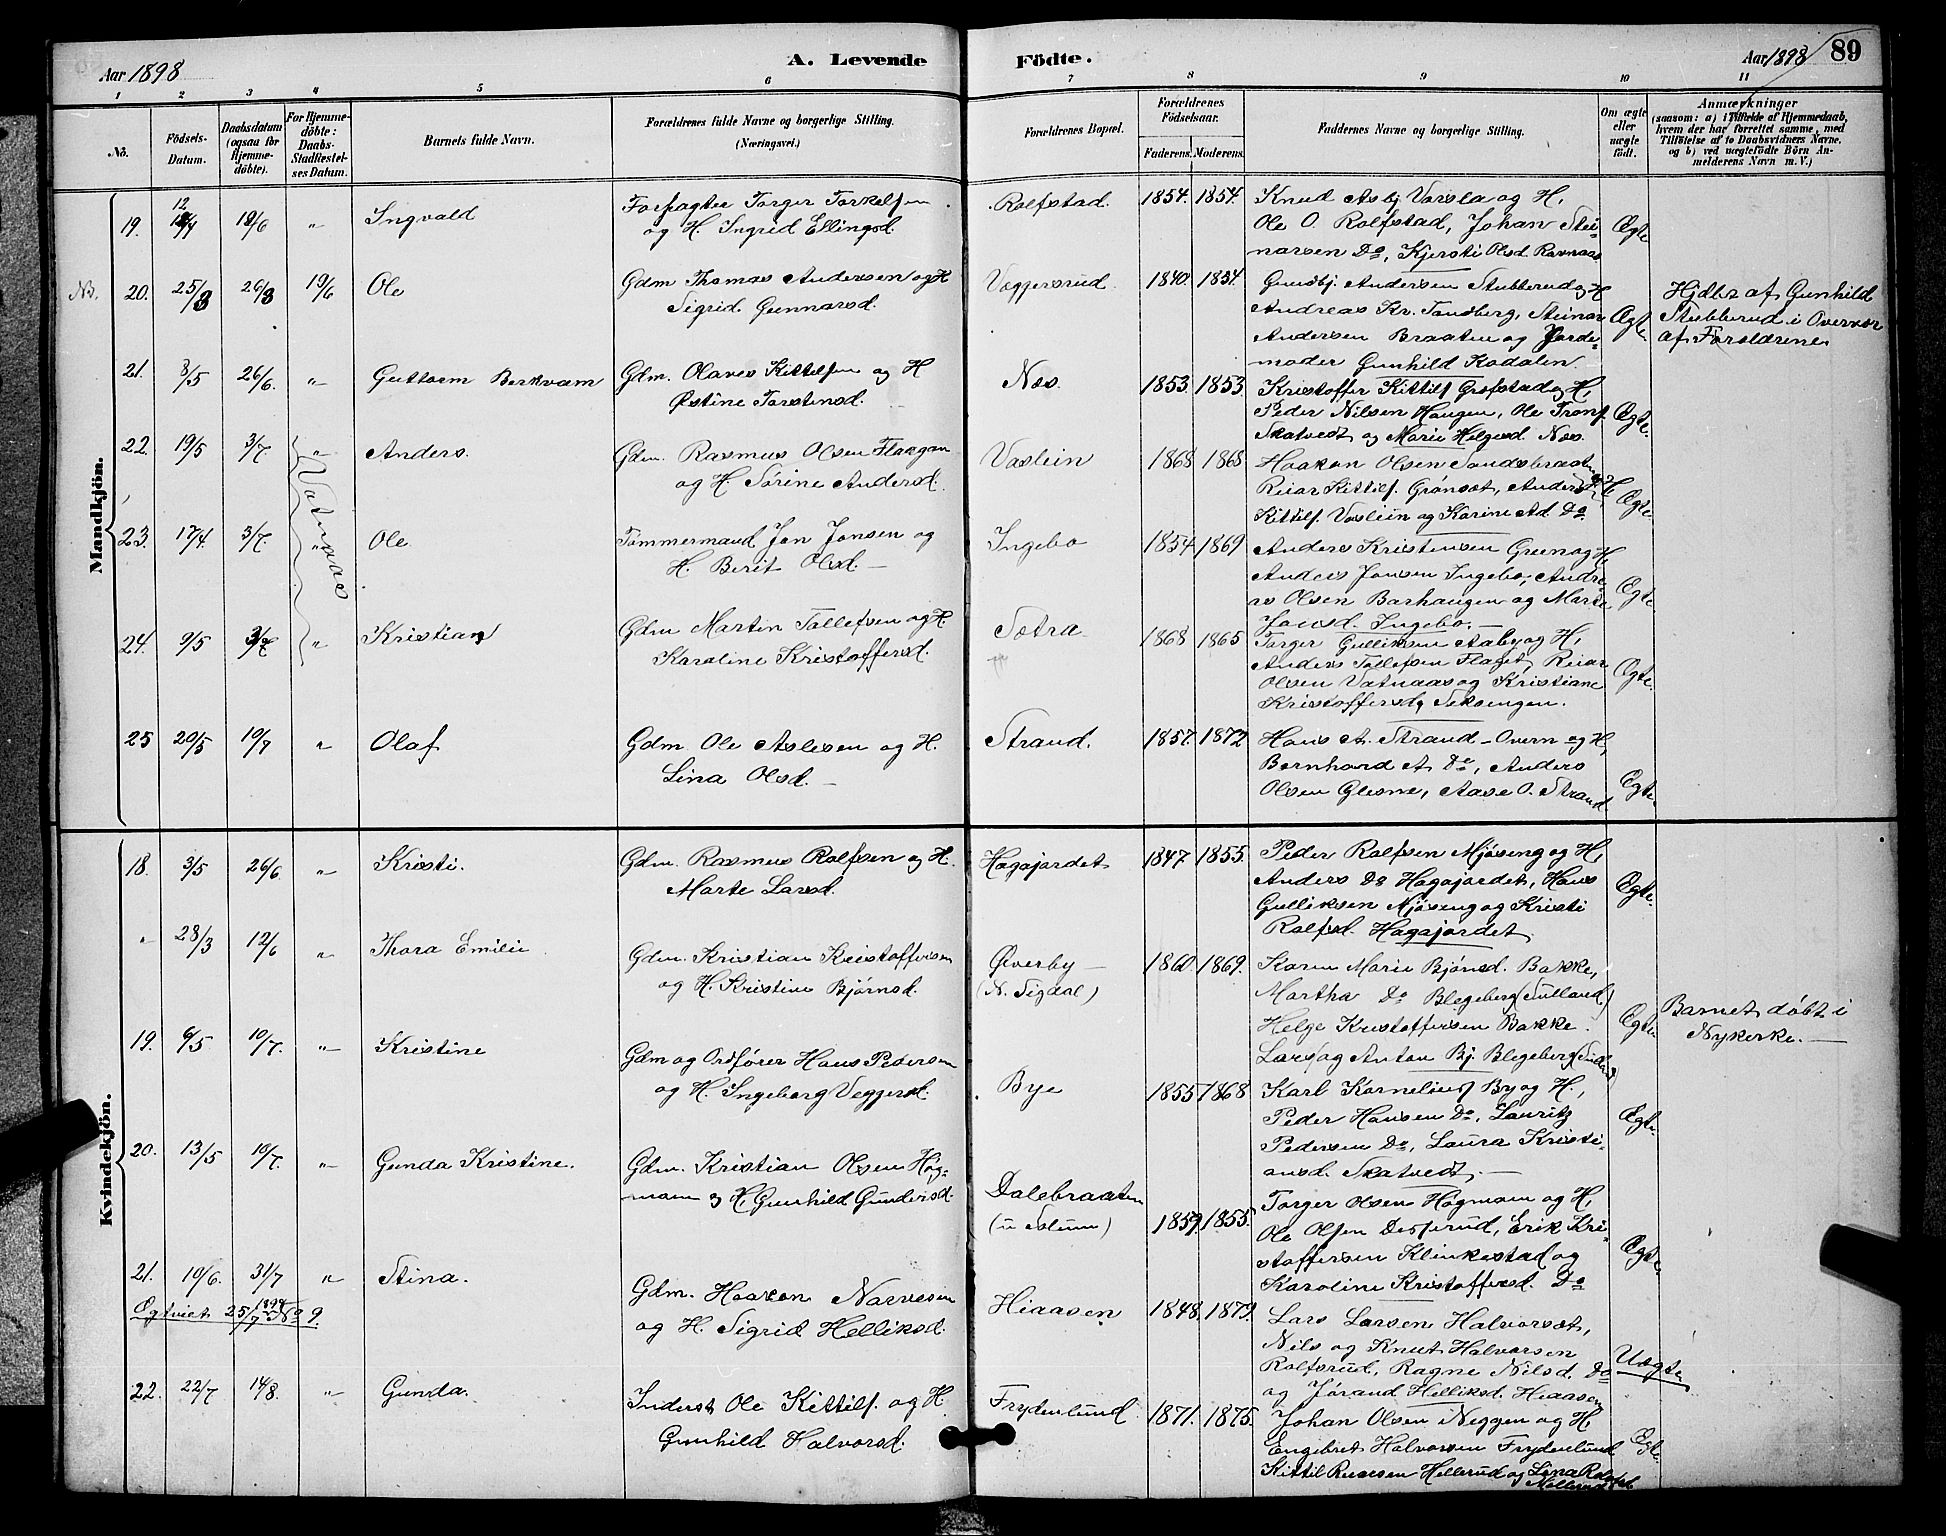 Aar 1898
A. Levende
Födte.
Aar 1898
89
1 2 3 4 5 6 7 8 9 10 11
No.
Födsels-Datum.
Daabsdatum (ogsaa för Hjemme-döbte).
For Hjemme-döbte: Daabs-Stadfæstel-ses Datum.
Barnets fulde Navn.
Forældrenes fulde Navne og borgerlige Stilling.
(Næringsvei.)
Forældrenes Bopæl.
Forældrenes Födselsaar.
Faderens. Moderens.
Faddernes Navne og borgerlige Stilling.
Om ægte eller uægte födt.
Anmærkninger
(saasom: a) i Tilfælde af Hjemmedaab,
hvem der har forrettet samme, med
Tilföielse af to Daabsvidners Navne,
og b) ved uægtefödte Börn An-
melderens Navn m. V.)
Mandkjön.
19. 12/4 19/6 " Ingvald
Forpagter Torger Torkelsen
og H. Ingrid Ellingsd.
Rolfstad. 1854. 1854.
Knud Asbj. Varsla og H,
Ole O. Rolfstad, Johan Stei-
narsen Do, Kjersti Olsd. Ravnaas
Ægte
NB. 20. 25/3 26/3 19/6 Ole
Gdm Thomas Andersen og H
Sigrid Gunnarsd.
Væggersrud. 1840. 1854.
Gundbj. Andersen Stubberud og H
Andreas Kr. Tandberg, Steinar
Andersen Braaten og Jorde-
moder Gunhild Kadalen.
Ægte
Hjdbt af Gunhild
Stubberud i Overvær
af Forældrene
21. 8/5 26/6. " Guttorm Berkvam
Gdm. Olaves Kittelsen og H
Østine Torstensd.
Næs. 1853. 1853.
Kristoffer Kittils. Grøfstad og H,
Peder Nilsen Haugen, Ole Trons.
Skatvedt og Marie Helgesd. Næs.
Ægte.
22. 19/5 3/7. " Anders.
Vatnaas
Gdm. Rasmus Olsen Flaegan
og H. Sørine Andersd.
Vaslein 1868 1868
Haakon Olsen Sandsbraaten
Reiar Kittils. Grønset, Anders
Kittils. Vaslein og Karine Ad. Do
Ægte.
23. 17/4. 3/7. " Ole
Tømmermand Jon Jonsen og
H. Berit Olsd.
Ingebo 1854 1869
Anders Kristensen Green og H,
Anders Jonsen Ingebo, Andre-
as Olsen Barhaugen og Marte
Jonsd. Ingebo.
Ægte.
24. 9/5 3/7 " Kristian
Gdm Martin Tollefsen og H.
Karoline Kristoffersd.
Sætra 1868 1865
Torger Gulliksen Aaby og H,
Anders Tollefsen Flaget, Reiar
Olsen Vatnaas og Kristiane
Kristoffersd. Seksengen.
Ægte.
25 20/5 10/7 " Olaf
Gdm Ole Aslesen og H.
Lina Olsd.
Strand. 1857. 1872
Hans A. Strand-Overn og H,
Bernhard A Do, Anders
Olsen Glesne, Aase O. Strand
Ægte.
Kvindekjön.
18. 3/5 26/6 " Kristi.
Gdm. Rasmus Rolfsen og H.
Marte Larsd.
Hagajordet 1847. 1855.
Peder Rolfsen Mjøseng og H,
Anders Do Hagajordet, Hans
Gulliksen Mjøseng og Kristi
Rolfsd. Hagajordet
Ægte.
" 28/3 12/6 " Thora Emilie
Gdm. Kristian Kristoffersen
og H. Kristine Bjørnsd.
Øverby
(N. Sigdal)
1860. 1869.
Karen Marie Bjørnsd. Bakke,
Martha Do Blegeberg (Sulland)
Helge Kristoffersen Bakke.
Lars og Anton Bj. Blegeberg
Ægte
Barnet døbt i
Nykirke.
19. 6/5 10/7. " Kristine
Gdm og Ordfører Hans Pedersen
og H. Ingeborg Veggersd.
Bye 1855 1868
Karl Kornelius By og H,
Peder Hansen Do, Lauritz
Pedersen Do, Laura Kristi-
ansd. Skatvedt.
Ægte.
20. 13/5 10/7. " Gunda Kristine.
Gdm. Kristian Olsen Hog-
mann og H. Gunhild Gundersd.
Dalebraaten
(u Solum)
1859. 1855.
Torger Olsen Hogmann og H,
Ole Olsen Desserud, Erik Kri-
stoffersen Klinkestad og
Karoline Kristoffersd. Do
Ægte.
21. 10/6. 31/7 " Stina.
Ægtviet 25/7 1898 No 9.
Gdm. Haakon Narvesen
og H. Sigrid Helliksd.
Hiaasen 1848. 1879.
Lars Larsen Halvorset,
Nils og Knut Halvorsen
Rolfsrud, Ragne Nilsd. Do
og Jørand Helliksd. Hiaasen
Uægte
22. 22/7 14/8. " Gunda.
Inderst Ole Kittils. og H
Gunhild Halvorsd.
Frydenlund. 1871. 1875.
Johan Olsen Neggen og H,
Engebret Halvorsen Frydenlund
Kittil Reiersen Hellerud og Lina
Hellerud
Ægte